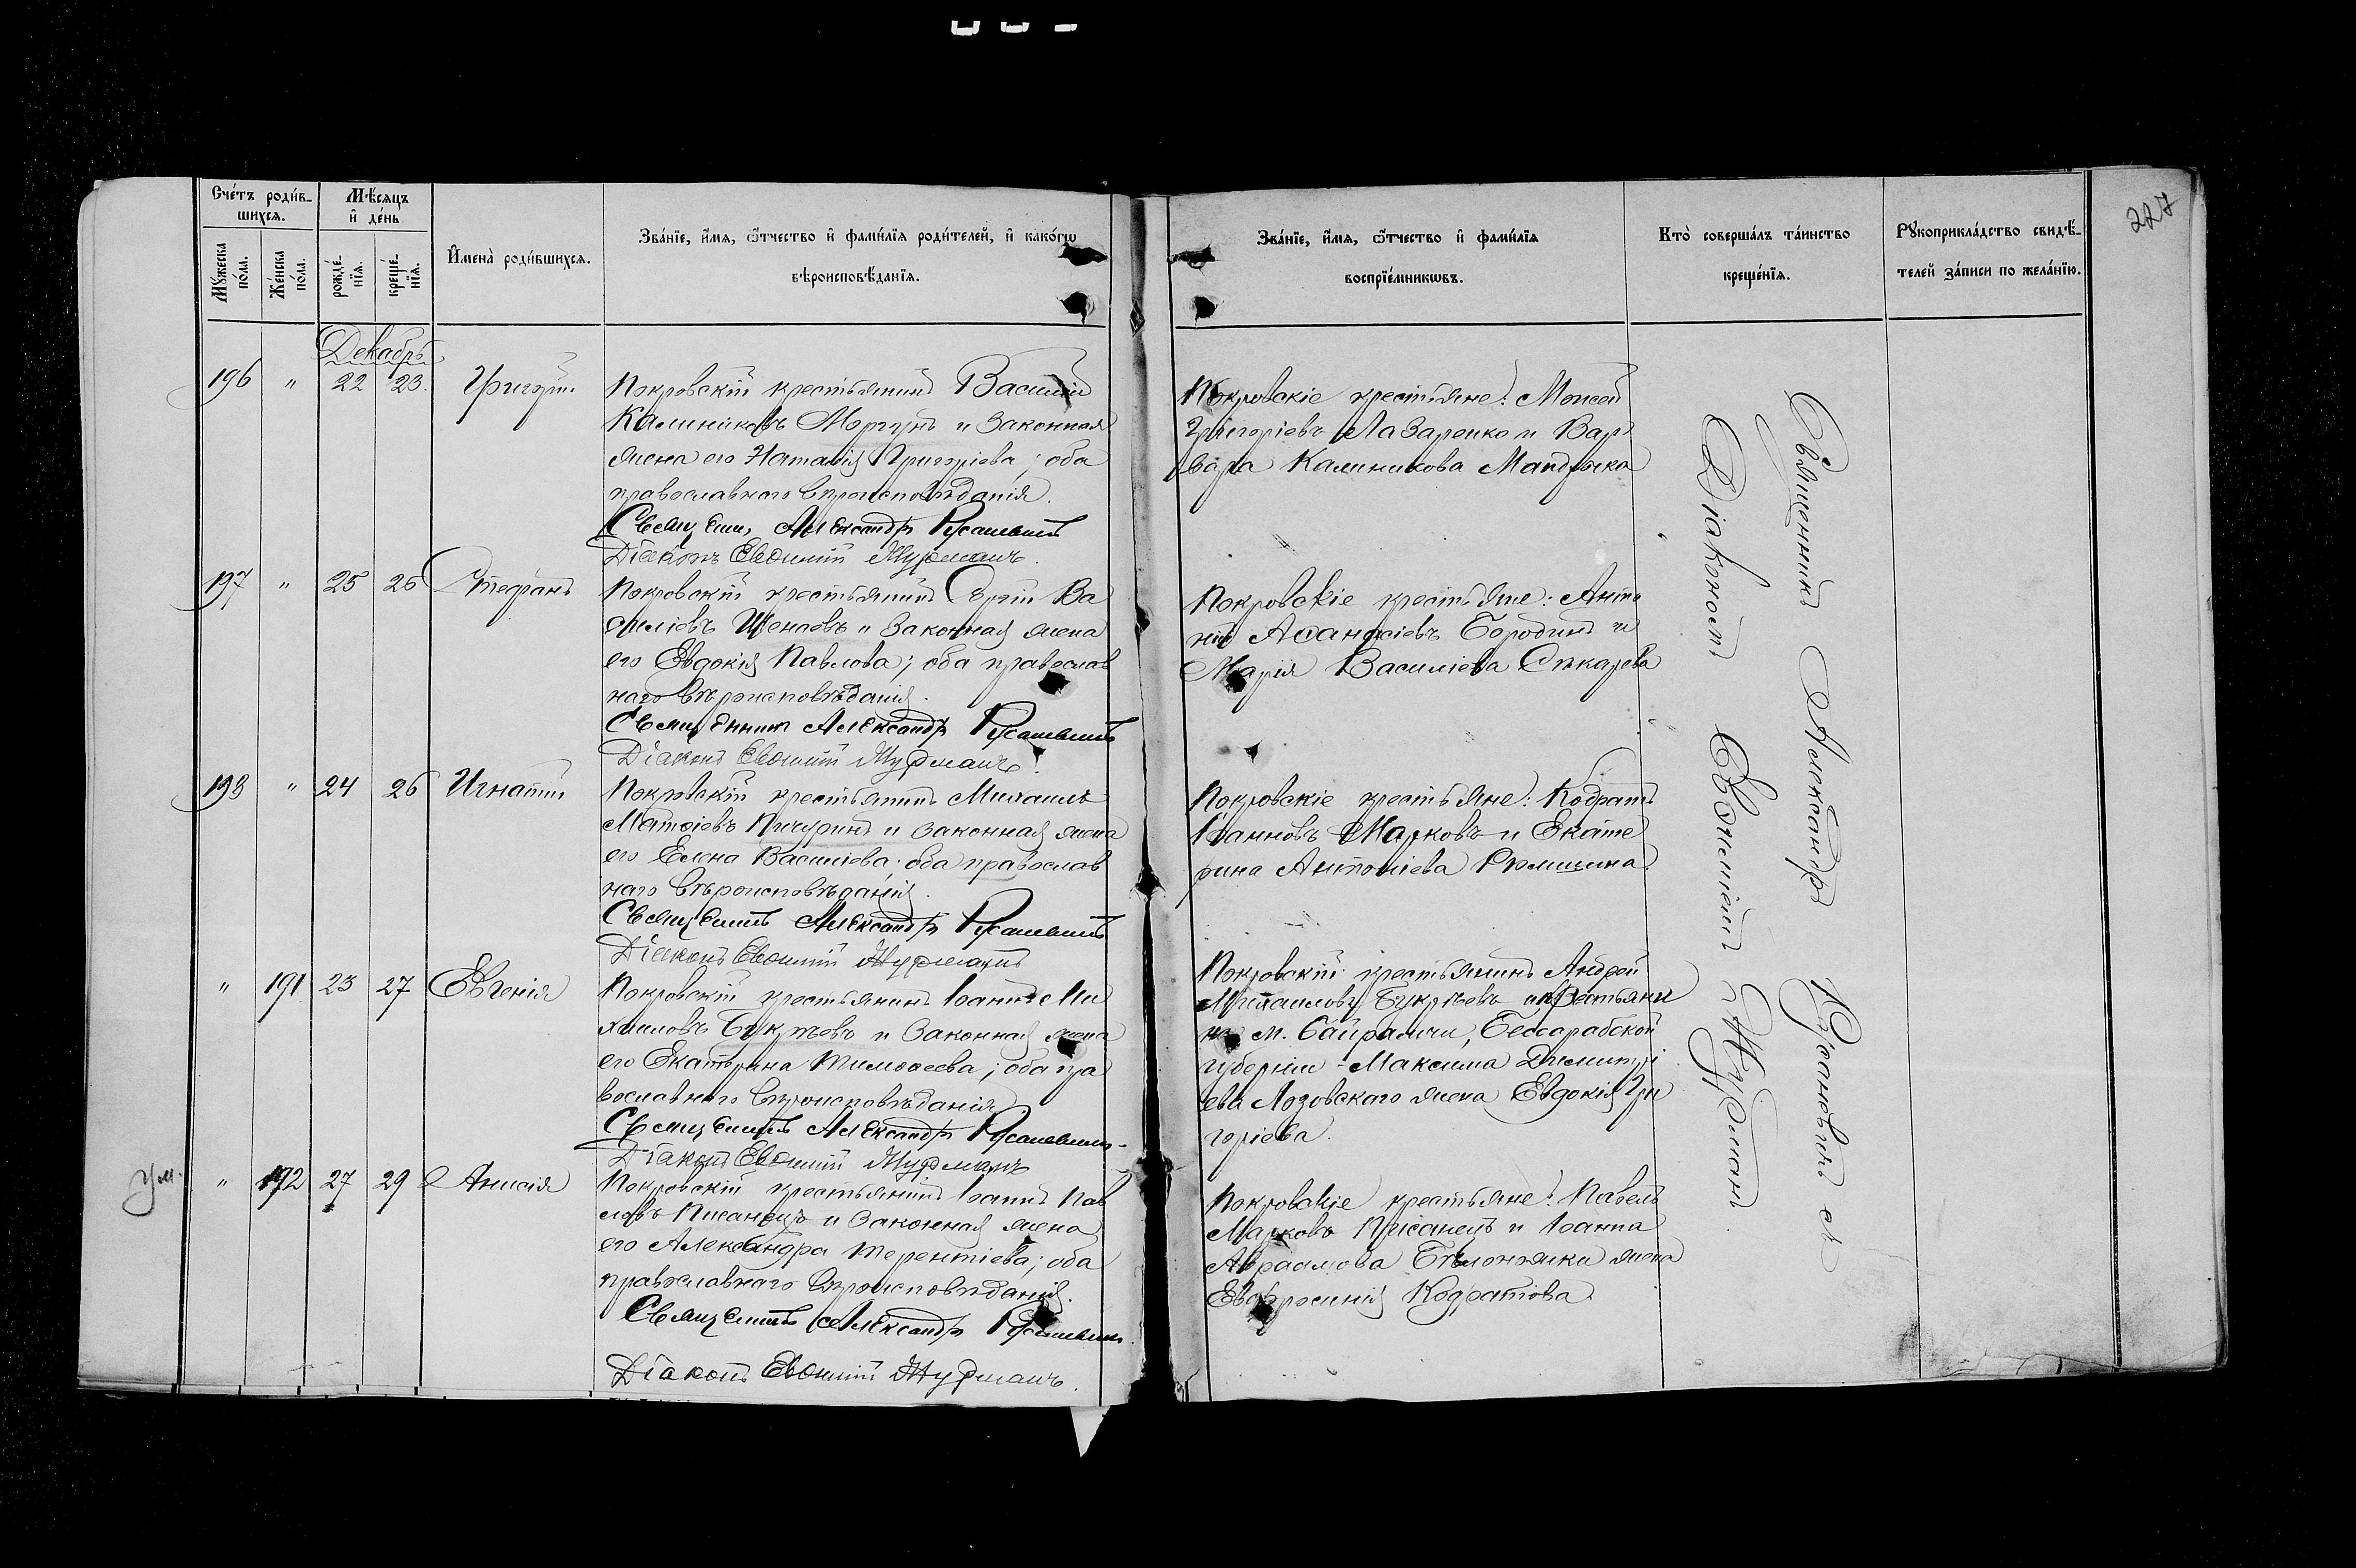 227
Счётъ роди́в-
шихся.
Мѣ́сяцъ
и҆ де́нь
Мꙋ́жеска
по́ла.
Же́нска
по́ла.
рожде́-
нїѧ.
креще́-
нїѧ.
И҆мена̀ роди́вшихсѧ.
Зва́нїе, и҆́мѧ, ѻ҆́тчество и҆ фами́лїѧ роди́телей, и҆ како́гѡ
вѣроисповѣ́данїѧ.
Зва́нїе, и҆́мѧ, ѻ҆́тчество и҆ фами́лїѧ
воспрїе́мникѡвъ.
Кто̀ соверша́лъ та́инство
креще́нїѧ.
Рꙋкоприкла́дство свидѣ́-
телей за́писи по жела́нїю.
Декабрь
196 " 22 23. Григорій
Покровскій крестьянинъ Василій
Калиниковъ Моргунъ и законная
жена его Наталія Григоріева; оба
православнаго вѣроисповѣданія.
Священникъ Александръ
Діаконъ Евѳимій Журжманъ.
Покровскіе крестьяне: Моисей
Григоріевъ Лазаренко и Вар
вара Калиникова Мандрыка
197 " 25 25 Стефанъ
Покровскій крестьянинъ Сергій Ва
силіевъ и законная жена
его Евдокія Павлова; оба православ
наго вѣроисповѣданія.
Священникъ Александръ
Діаконъ Евѳимій
Покровскіе крестьяне: Анто
ній Аѳанасіевъ Бородинъ и
Марія Василіева
198 " 24 26 Игнатій
Покровскій крестьянинъ Михаилъ
Матѳіевъ Пичуринъ и законная жена
его Елена Василіева; оба православ
наго вѣроисповѣданія.
Священникъ Александръ
Діаконъ Евѳимій
Покровскіе крестьяне: Кодратъ
Іоанновъ Марковъ и Екате
рина Антоніева
" 191 23 27 Евгенія
Покровскій крестьянинъ Іоаннъ Ми
хаиловъ Букрѣевъ и законная жена
его Екатерина Тимоѳеева; оба пра
вославнаго вѣроисповѣданія
Священникъ Александръ
Діаконъ Евѳимій
Покровскій крестьянинъ Андрей
Михаиловъ Букрѣевъ и крестьяни
на м. Байрамчи, Бессарабской
губерніи - Максима Димитрі
ева Лозовскаго жена Евдокія Гри
горіева.
Ум.
" 192 27 29 Анисія
Покровскій крестьянинъ Іоаннъ Пав
ловъ Писанецъ и законная жена
его Александра Терентіева; оба
православнаго вѣроисповѣданія.
Священникъ Александръ
Діаконъ Евѳимій
Покровскіе крестьяне: Павелъ
Марковъ Писанецъ и Іоанна
Авраамова жена
Евфросинія Кодратова.
Священникъ Александръ
Діакономъ Евѳиміемъ